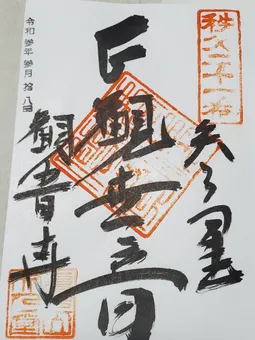 秩父二十一番
矢之堂
正観世音
観音寺
令和参年参月拾八日